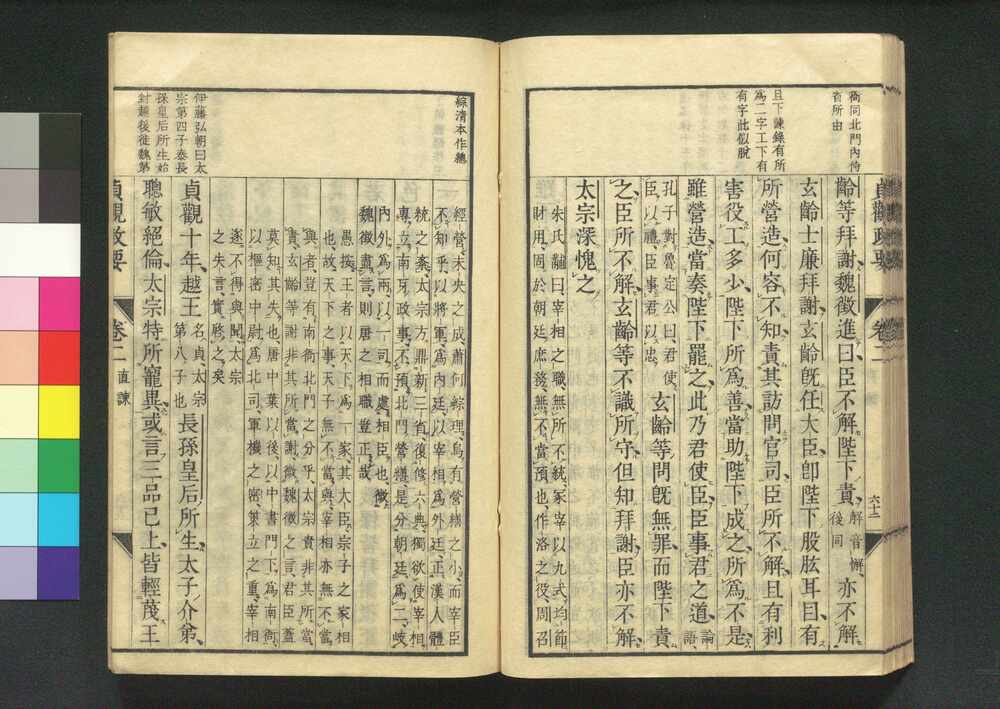 衙同北門內侍
省所由
且下諫錄有所
爲二字工下有
有字此似脫
貞觀政要
卷二
六十二
齡等拜謝魏徵進曰臣不解陛下責解音懈後同亦不解
玄齡士廉拜謝玄齡旣任大臣卽陛下股肱耳目有
所營造何容不知責其訪問官司臣所不解且有利
害役工多少陛下所爲善當助陛下成之所爲不是
雖營造當奏陛下罷之此乃君使臣臣事君之道論語
孔子對魯定公曰君使臣以禮臣事君以忠玄齡等問旣無罪而陛下責
之臣所不解玄齡等不識所守但知拜謝臣亦不解
太宗深愧之
朱氏黼曰宰相之職無所不統冢宰以九式均節
財用固於朝廷庶務無不當預也作洛之役周召
綜清本作總
經營未央之成蕭何綜理烏有營繕之小而宰臣
不知乎以將軍爲內廷以宰相爲外廷正漢人體
統之紊太宗方鼎新三省復修六典獨欲使宰相
專立南牙政事不預北門營繕是分朝廷爲二岐
內外爲兩以一司而處相臣也徵
魏徵盡言則唐之相職豈正哉
愚按王者以天下爲一家其大臣宗子之家相
也故天下之事天子無不當與宰相亦無不當
與者豈有南衙北門之分乎太宗責非其所當
責玄齡等謝非其所當謝微魏徵之言君臣蓋
莫知其失也唐中葉以後以中書門下爲南衙
以樞密中尉爲北司軍機之密策立之重宰相
遂不得與聞太宗
之失言實啓之矣
貞觀十年越王名貞太宗第八子也長孫皇后所生太子介弟
聰敏絕倫太宗特所寵異或言三品已上皆輕蔑王
伊藤弘朝曰太
宗第四子泰長
孫皇后所生始
封越後徙魏第
貞觀政要
卷二
直諫